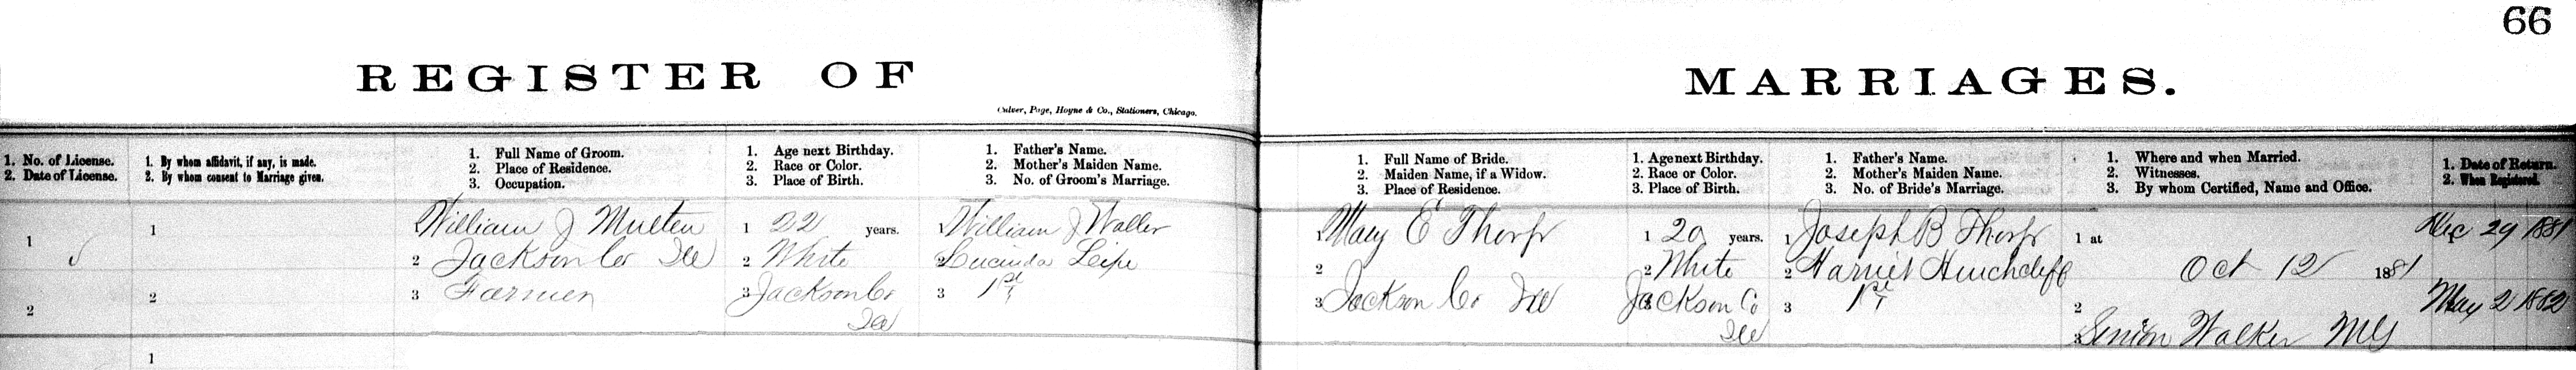 66
REGISTER OF MARRIAGES.
Culver, Page, Hoyne & Co., Stationers, Chicago.
1. No. of License.
2. Date of License.
1. By whom affidavit, if any, is made.
2. By whom consent to Marriage given.
1. Full Name of Groom.
2. Place of Residence.
3. Occupation.
1. Age next Birthday.
2. Race or Color.
3. Place of Birth.
1. Father's Name.
2. Mother's Maiden Name.
3. No. of Groom's Marriage.
1. Full Name of Bride.
2. Maiden Name, if a Widow.
3. Place of Residence.
1. Age next Birthday.
2. Race or Color.
3. Place of Birth.
1. Father's Name.
2. Mother's Maiden Name.
3. No. of Bride's Marriage.
1. Where and when Married.
2. Witnesses.
3. By whom Certified, Name and Office.
1. Date of Return.
2. When Registered.
1
2
1
2
1 William J
2 Jackson Co Ill
3 Farmer
1 22 years.
2 White
3 Jackson Co
Ill
1 William J Waller
2 Lucinda Leipe
3 1st
1 Mary E Thorp
2
3 Jackson Co Ill
1 20 years.
2 White
3 Jackson Co
Ill
1 Joseph B Thorp
2 Harriet Hinchcliff
3 1st
1 at
Oct 12 1881
2
3 Simion Walker MG
Dec 29 1881
May 2 1882
1